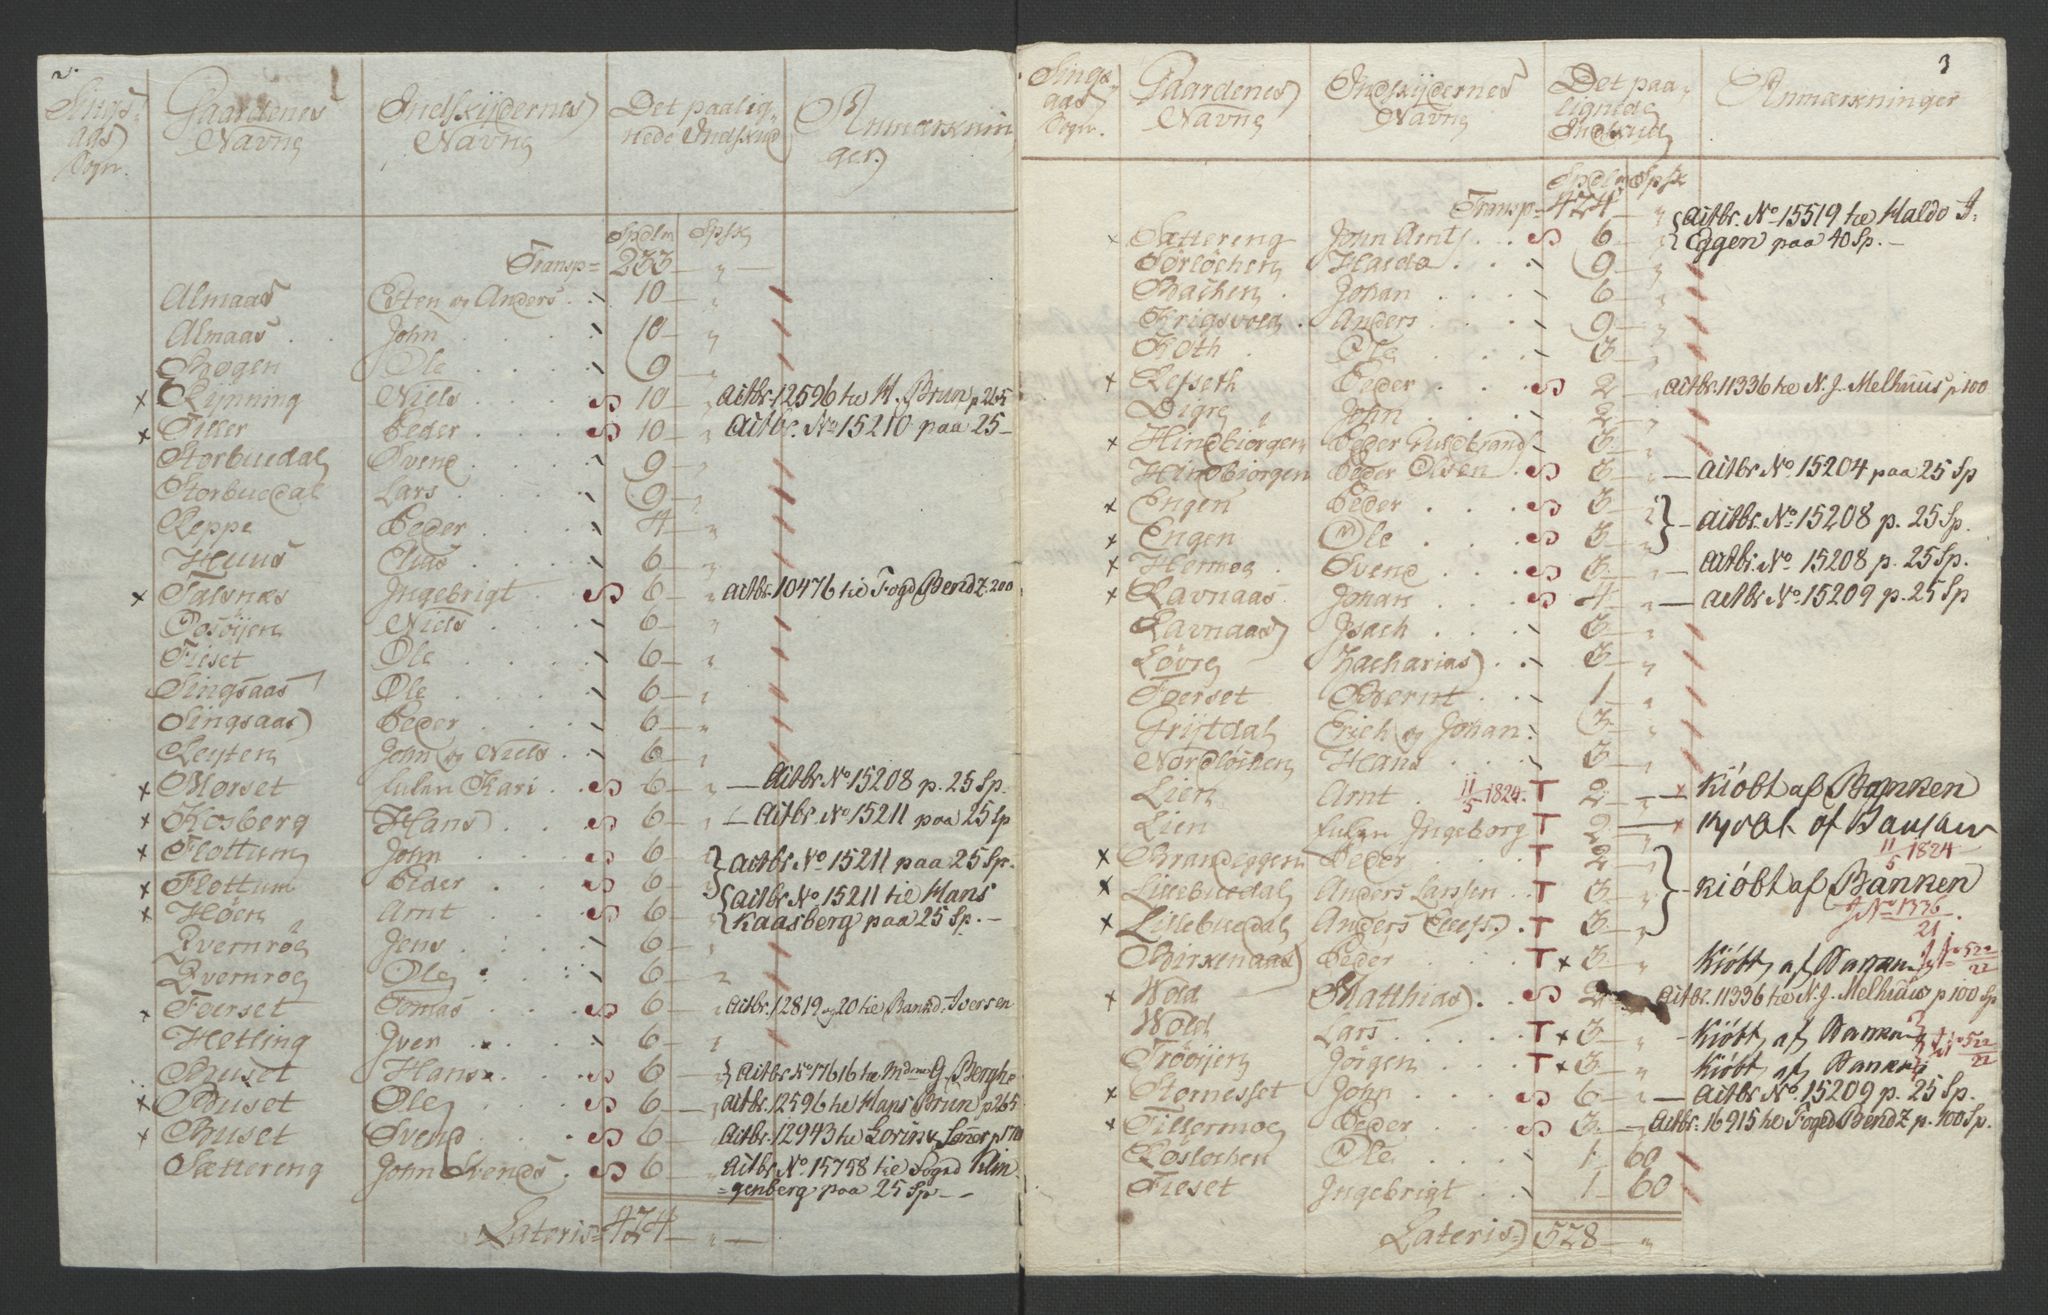 2.
Sings-
aas
Sogn.
Gaardenes
Navne
Indskÿdernes
Navne
Det paalig-
nede Indskud
Anmærknin
ger.
Spdlr Spsk
Transp= 233 — " —
Almaas Esten og Anders 10 — "
Almaas John 10 — "
Bogen Ole 9 — "
x Rÿnning Niels S 10 — " actbr. 12596 til H. Brun p 265
x Tiller Peder S 10 — " actbr. No 15210 paa 25 —
Storbuedal Svend 9 — "
Storbuedal Lars 9 — "
Reppe Peder 4 — "
Huus Elias 6 — "
x Talsnæs Ingebrigt S 6 — " actbr. 10476 til Fogd Bendz 200
Niels 6 — "
Fieset Ole 6 — "
Singsaas Ole 6 — "
Singsaas Peder 6 — "
Leÿten John og Niels 6 — "
x Morset Enken Kari S 6 — " — actbr. No 15208 p. 25 Sp.
x Kosberg Hans S 6 — " — actbr. No 15211 paa 25 Sp
x Flottum John S 6 — " } actbr. No 15211 paa 25 Sp.
x Flottum Peder S 6 — "
x Høen Arnt S 6 — " { actbr. No 15211 til Hans
Kaasberg paa 25 Sp. —
Qvernrøe Jens 6 — "
Qvernroe Ole 6 — "
x Foerset Tomas S 6 — " actbr. 12819 og 20 til Bankd. Iversen
Hetling Iver 6 — "
Buset Hans S 6 — " { actbr. No 17616 til Mdme G. Berghe
x Buset Ole S 6 — " actbr. 12596 til Hans Brun p 265
x Buset Svend S 6 — " actbr. 12943 til Lorink
Sættereng John Svends S 6 — " actbr. No 15758 til Fogd Klin
=genberg paa 25 Sp —
Lateris = 474 — " —
3
Sings
aas
Sogn.
Gaardenes
Navne
Indskÿdernes
Navne
Det paa-
lignede
Indskud
Anmærkninger
Spdlr Spsk
Transp= 474 — "
x Sættereng John Arnts S 6 — " { actbr. No 15519 til Haldo I.
Eggen paa 40 Sp. —
Sørløchen Haldo 9 — "
Bachen Johan 6 — "
Krigsvold Anders 9 — "
Koth Ole 3 — "
x Refseth Peder S 2 — actbr. 11336 til N. J. Melhuus p 100
Digre John 2 — "
x Hindbiørgen Peder Guldbrand 3 — "
Hindbiørgen Peder Olsen S 3 — " — actbr. No 15204 paa 25 Sp
x Engen Peder S 3 — " } — actbr. No 15208 p. 25 Sp.
x Engen Ole S 3 — "
x Hermoe Svend S 3 — " — actbr. No 15208 p. 25 Sp.
x Ravnaas Johan S 4 — " — actbr No 15209 p. 25 Sp
Ravnaas Isach 3 — "
Løvre Zacharias 3 — "
Foerset Bernt 1 — "
Grÿtdal Erich og Johan 3 — "
Nordløchen Hans 3 — "
Lien Arnt 11/5 1824. T 2 — " — x Kiöbt af Banken
Lien Enken Ingeborg T 2 — x Kjöbt af Banken
11/5 1824
x Brandeggen Peder T 2 — "
x Lillebuedal Anders Larssen T 3 — " } — Kiöbt af Banken
x Lillebuedal Anders T 3 — " J No 1336/21.
Birkenaas Peder T x 3 — " Kiöbt af Banken J No 522/22
x Wold Matthias S 2 — actbr. 11336 til N. J. Melhuus p 100 Sp
Wold Lars T x 3 — " — Kiöbt af Banken } J No 522/22
Trøoÿen Jørgen T x 3 — " Kiöbt af Banken
x Stornesset John S 6 — " — actbr. No 15209 p. 25 Sp.
x Tillermoe Peder S 3 — " actbr. 16915 til Foged Bendz p. 100 Sp.
Røsløchen Ole 1 — 60
Fieset Ingebrigt 1 — 60
Lateris 528 — "